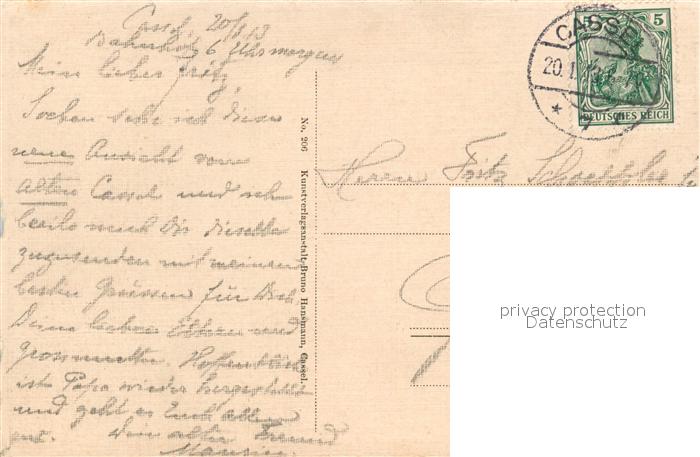 Cassel, 20/1 13
Bahnhof 6 Uhr morgens
Mein lieber Fritz,
Soeben sehe ich diese
neue Ansicht vom
alten Cassel und
beeile mich Dir dieselbe
zuzusenden mit meinen
besten Grüssen für Dich
Deine lieben Eltern und
Grossmutter. Hoffentlich
ist Papa wieder hergestellt
und geht es Euch allen
gut. Dein alter Freund
No. 206 Kunstverlagsanstalt Bruno Hansmann, Cassel.
CASSEL
20.1.
5 5
DEUTSCHES REICH
Herrn Fritz
privacy protection
Datenschutz